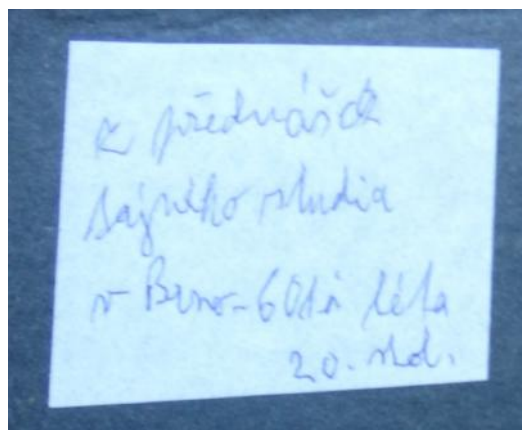 k přednášce
tajného studia
v Brno - 60tá léta
20. stol.